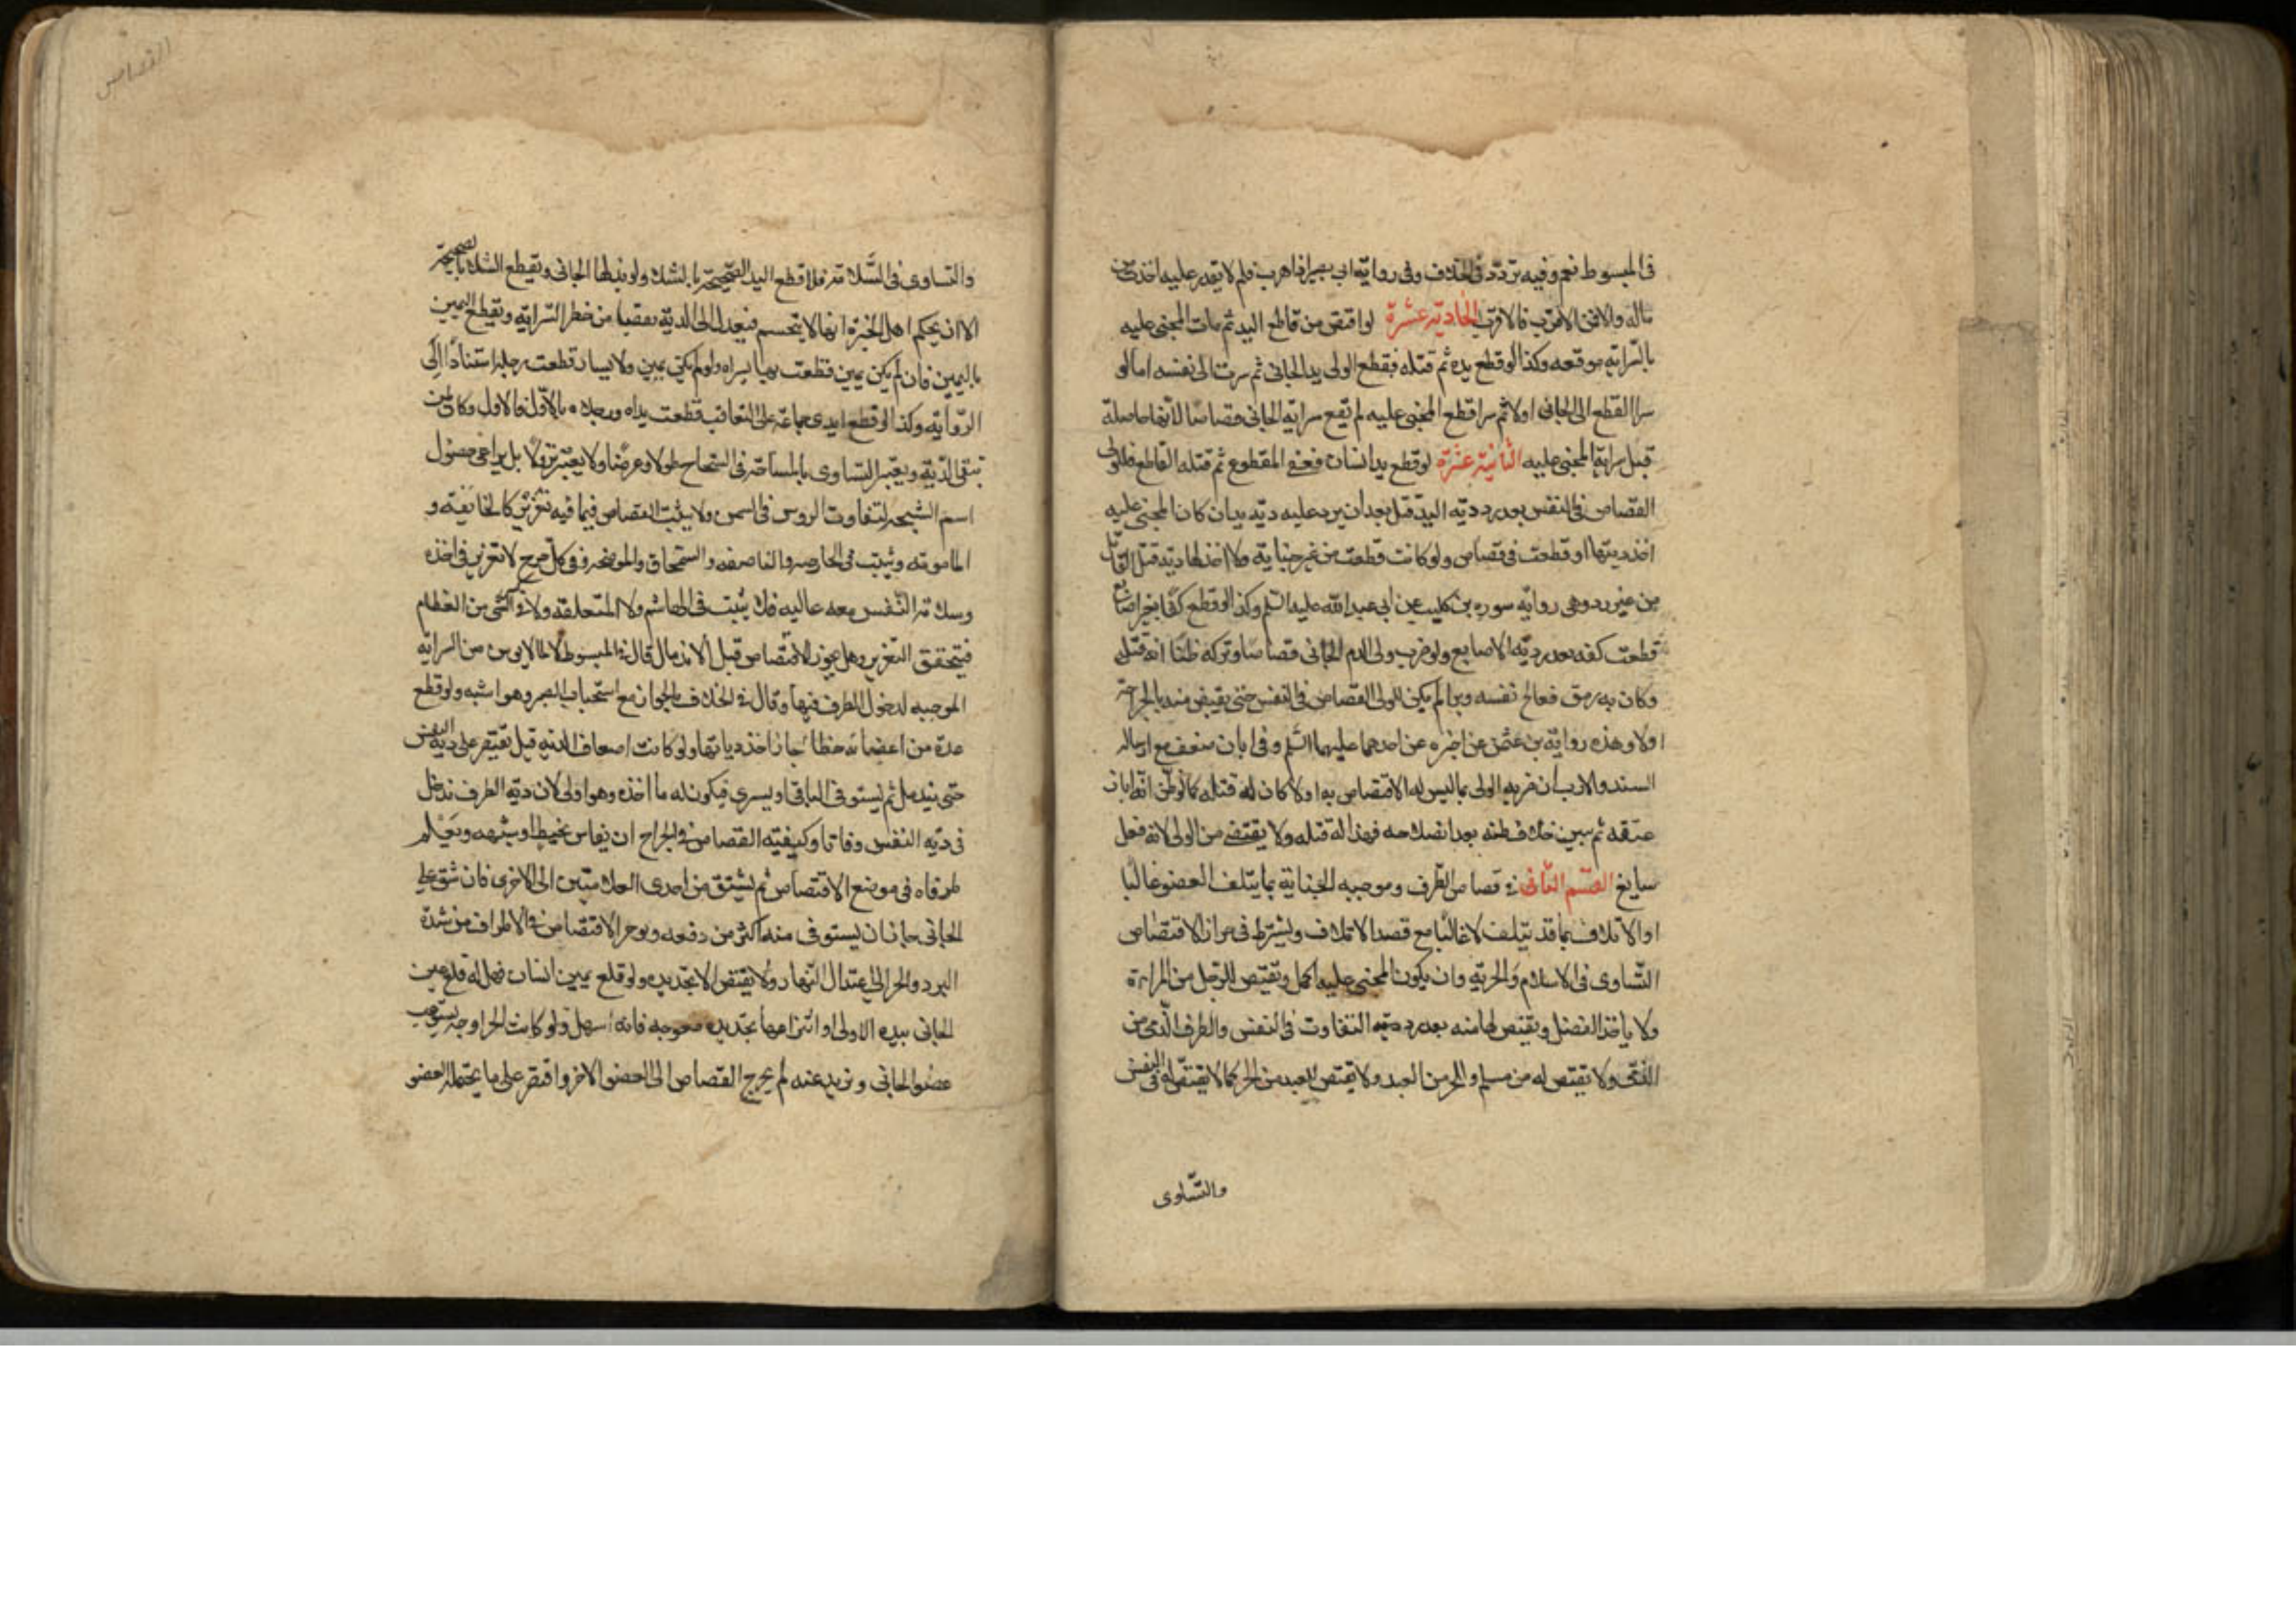 فى المبسوط نعم وفيه تردد فى الخلاف وفى رواية ابى بصير اذا هرب فلم لا يقدر عليه اخذت من
ماله والا فمن الاقرب فالاقرب الحادية عشرة لو اقتص من قاطع اليد ثم مات المجنى عليه
بالسراية موقعه وكذا لو قطع يده ثم قتله فقطع الولى يد الجانى ثم سرت الى نفسه اما لو
سرا القطع الى الجانى اولا ثم سرا قطع المجنى عليه لم تقع سراية الجانى قصاصا لانها حاصلة
قبل سراية المجنى عليه الثانية عشرة لو قطع يد انسان فعفى المقطوع ثم قتله القاطع فللولى
القصاص فى النفس بعد رد دية اليد قتل بعد ان يرد عليه دية يده ان كان المجنى عليه
اخذ ديتها او قطعت فى قصاص ولو كانت قطعت من غير جناية ولا اخذ لها دية قتل القاتل
من غير رد وهى رواية سوره بن كليب عن ابى عبد الله عليه السلم وكذا لو قطع كفا بغير اصابع
قطعت كفه بعد رد دية الاصابع ولو ضرب ولى الدم الجانى قصاصا وتركه ظنا انه قتل
وكان به رمق فعالج نفسه وبرا لم يكن للولى القصاص فى النفس حتى يقتص منه بالجراحة
اولا وهذه رواية بن عثمن عن اخبره عن احدهما عليهما السلم وفى ابان ضعف مع ارساله
السند والاقرب ان ضربه الولى بما ليس له الاقتصاص به اولا كان له قتله كما لو ظن انه ابان
عنقه ثم تبين خلاف ظنه بعد انصلاحه فهذا له قتله ولا يقتص من الولى لانه فعل
سايغ القسم الثانى فى قصاص الطرف وموجبه الجناية بما يتلف العضو غالبا
او الاتلاف بما قد يتلف لا غالبا مع قصد الاتلاف ويشترط فى جواز الاقتصاص
التساوى فى الاسلام والحرية وان يكون المجنى عليه اكمل ويقتص للرجل من المراة
ولا ياخذ الفضل ويقتص لها منه بعد رد دية التفاوت فى النفس والطرف الذمى من
الذمى ولا يقتص له من مسلم وللحر من العبد ولا يقتص للعبد من الحر كما لا يقتص له فى النفس
والتساوى
القصاص
والتساوى فى السلامة فلا تقطع اليد الصحيحة بالشلاء ولو بذلها الجانى وتقطع الشلاء بالصحيحة
الا ان يحكم اهل الخبرة انها لا ينحسم فيعدل الى الدية تفصيا من خطر السراية وتقطع اليمين
باليمين فان لم يكن يمين قطعت بها يسراه ولو لم يكن يمين ولا يسار قطعت رجله استنادا الى
الرواية وكذا لو قطع ايدى جماعة على التعاقب قطعت يداه ورجلاه بالاول فالاول وكان لمن
تبقى الدية ويعتبر التساوى بالمساحة فى الشجاج طولا وعرضا ولا يعتبر نزولا بل يراعى حصول
اسم الشجة لتفاوت الروس فى السمن ولا يثبت القصاص فيما فيه تغرير كالجائفة و
المامومة ويثبت فى الحارصه والباضعه والسمحاق والموضحه وفى كل جرح لا تغرير فى اخذه
وسلامة النفس معه غالبه فلا يثبت فى الهاشمه ولا المنقلة ولا فى كسر شى من العظام
فيتحقق التغرير وهل يجوز الاقتصاص قبل الاندمال قال فى المبسوط لا لما لا يومن من السراية
الموجبه لدخول الطرف فيها وقال فى الخلاف بالجواز مع استحباب الصبر وهو اشبه ولو قطع
عدة من اعضائه خطا جاز اخذ دياتها ولو كانت اضعاف الديه قيل يقتصر على دية النفس
حتى يندمل ثم يستوفى الباقى او يسرى فيكون له ما اخذه وهو اولى لان دية الطرف تدخل
فى دية النفس وفاقا وكيفية القصاص فى الجراح ان يقاس بخيط او شبهه ويعلم
طرفاه فى موضع الاقتصاص ثم يشق من احدى العلامتين الى الاخرى فان شق على
الجانى جاز ان يستوفى منه اكثر من دفعه ويوخر الاقتصاص فى الاطراف من شدة
البرد والحر الى اعتدال النهار ولا يقتص الا بحديده ولو قلع عين انسان فهل له قلع عين
الجانى بيده الاولى او انتزاعها بحديده معوجه فانه اسهل ولو كانت الجراحة تستوعب
عضو الجانى وتزيد عنه لم يخرج القصاص الى العضو الاخر واقتصر على ما يحتمله العضو